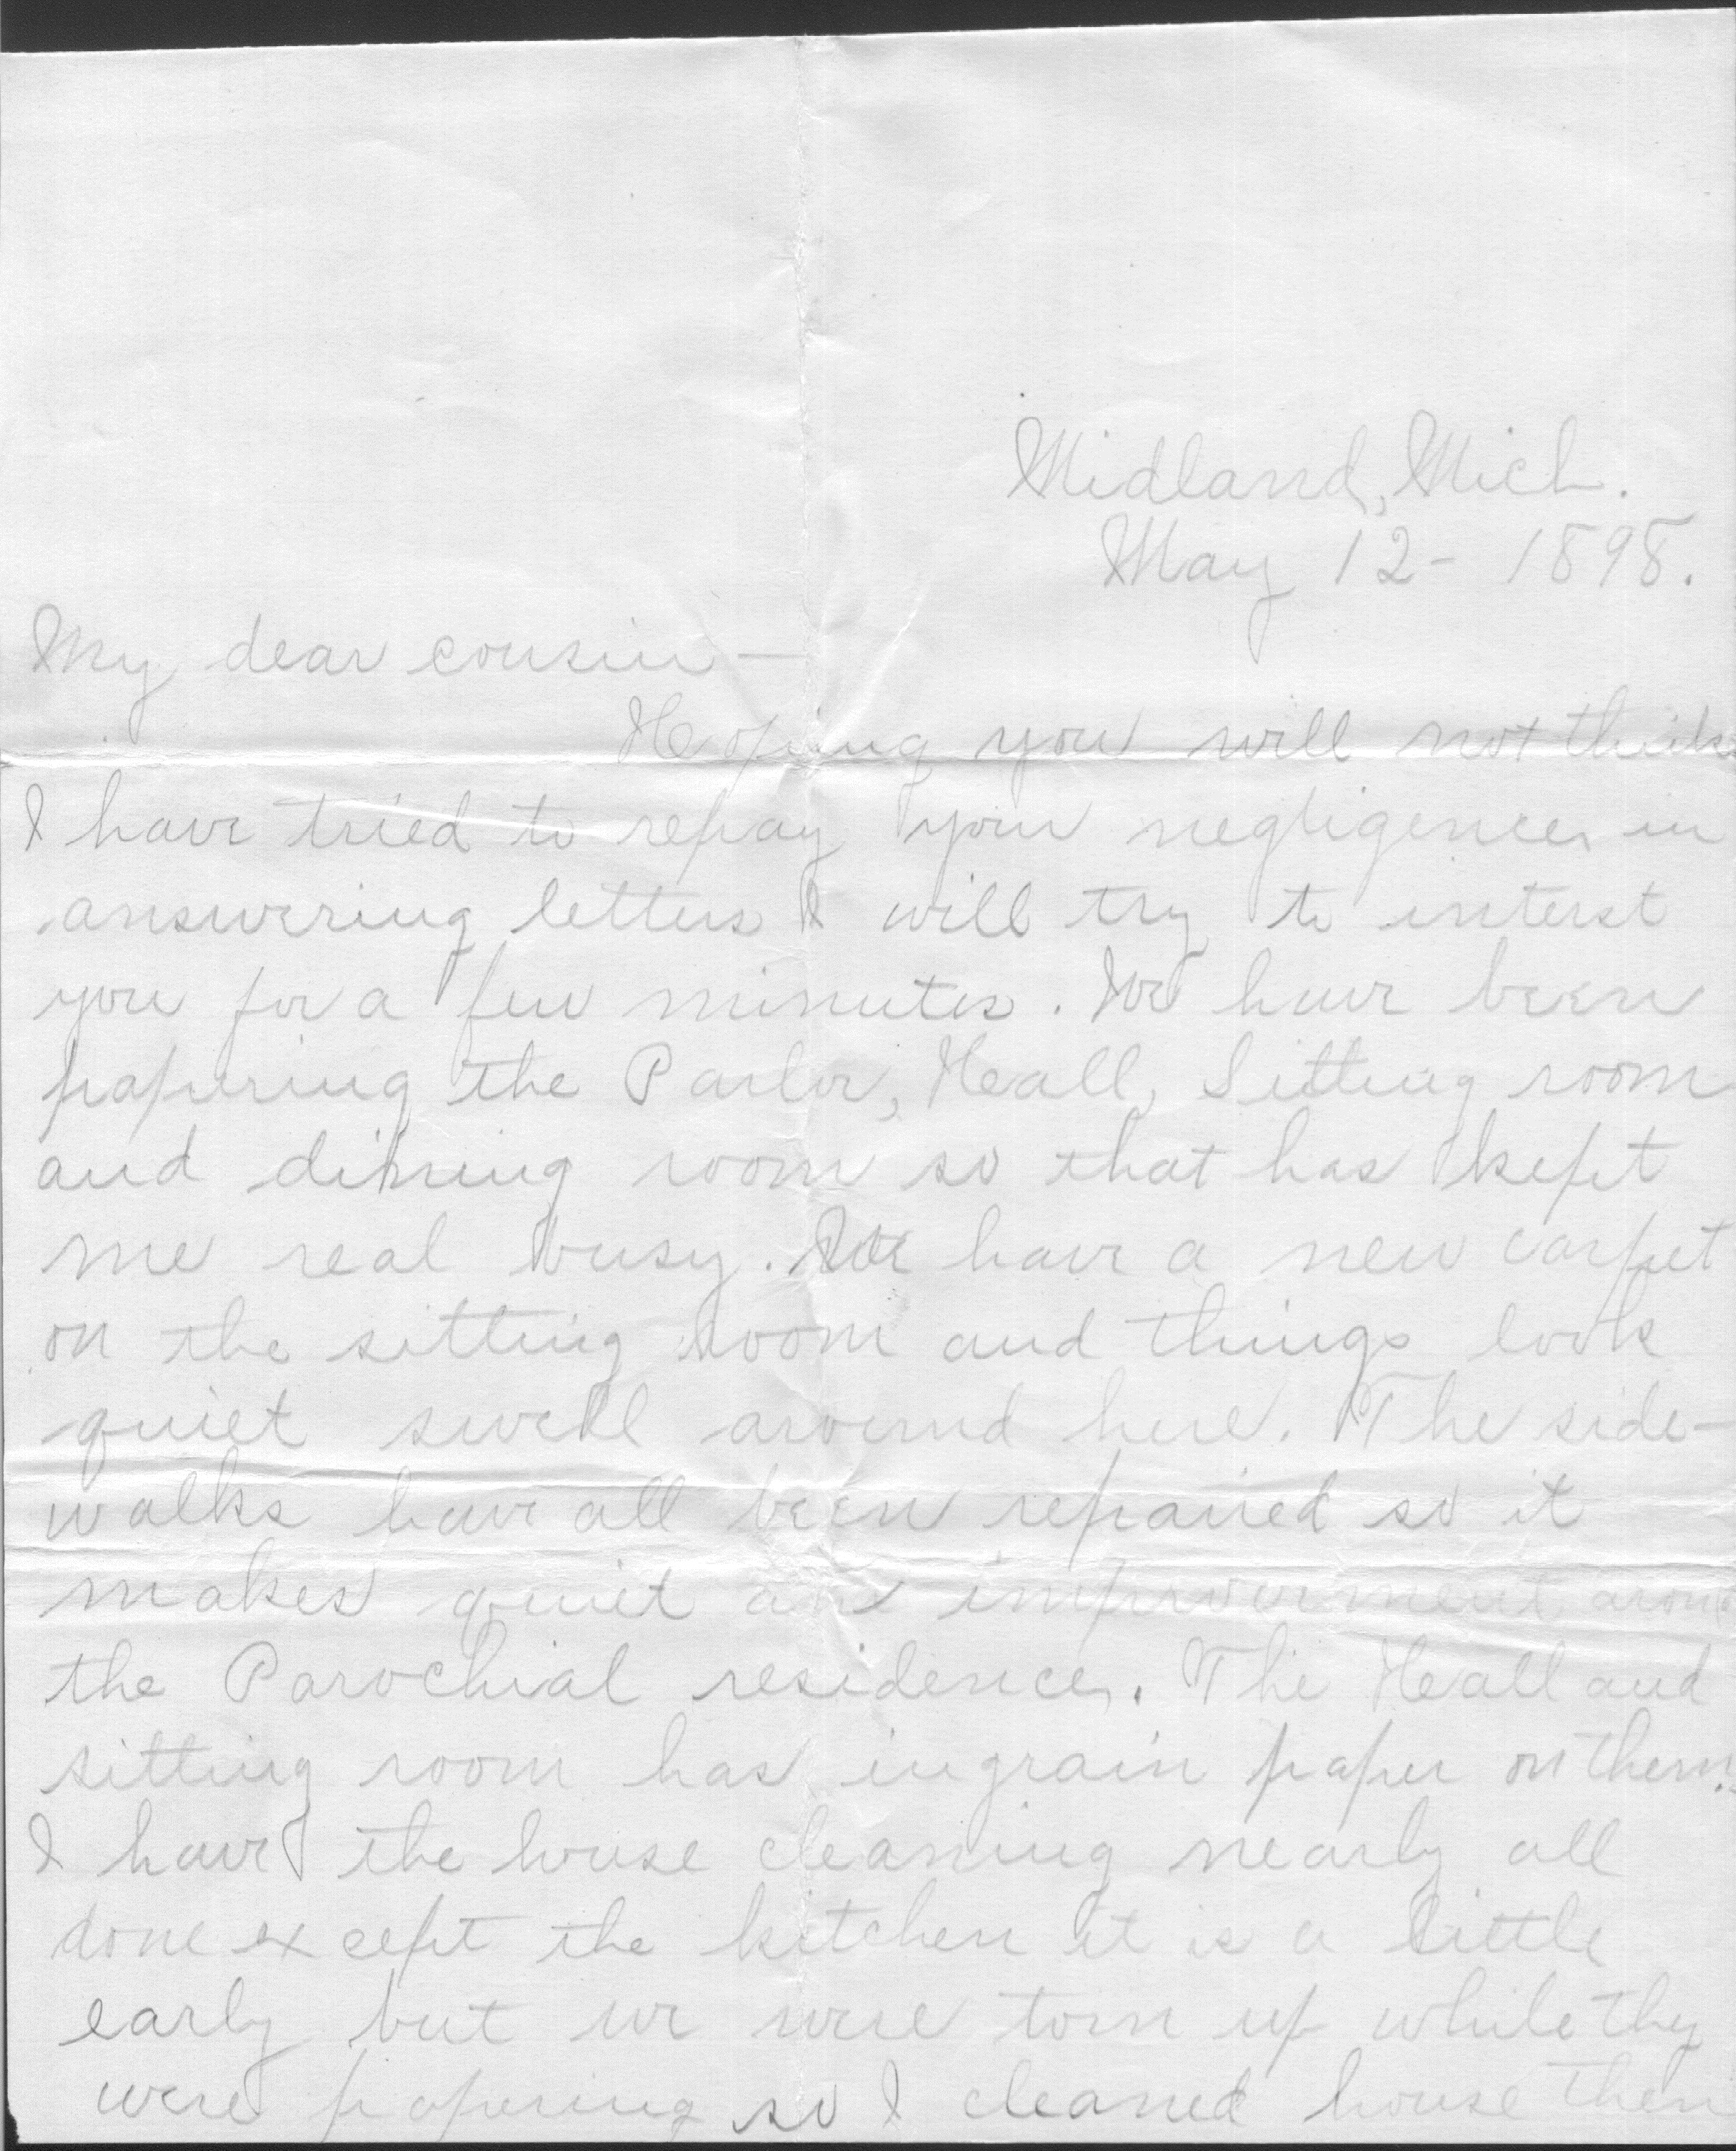 Midland, Mich.
May 12 - 1898.
My dear cousin —
Hoping you will not think
I have tried to repay your negligence in
answering letters I will try to interst
you for a few minutes. We have been
papering the Parlor, Hall, Sitting room
and dining room so that has kept
me real busy. We have a new carpet
on the sitting room and things look
quiet swell around here. The side-
walks have all been repaired so it
makes quiet an improvement aroun
the Parochial residence. The Hall and
sitting room has ingrain paper on them.
I have the house cleaning nearly all
done except the kitchen it is a little
early but we were torn up while they
were papering so I cleaned house then